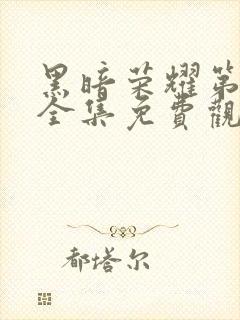 黑暗荣耀第
全集免費觀
都塔尔